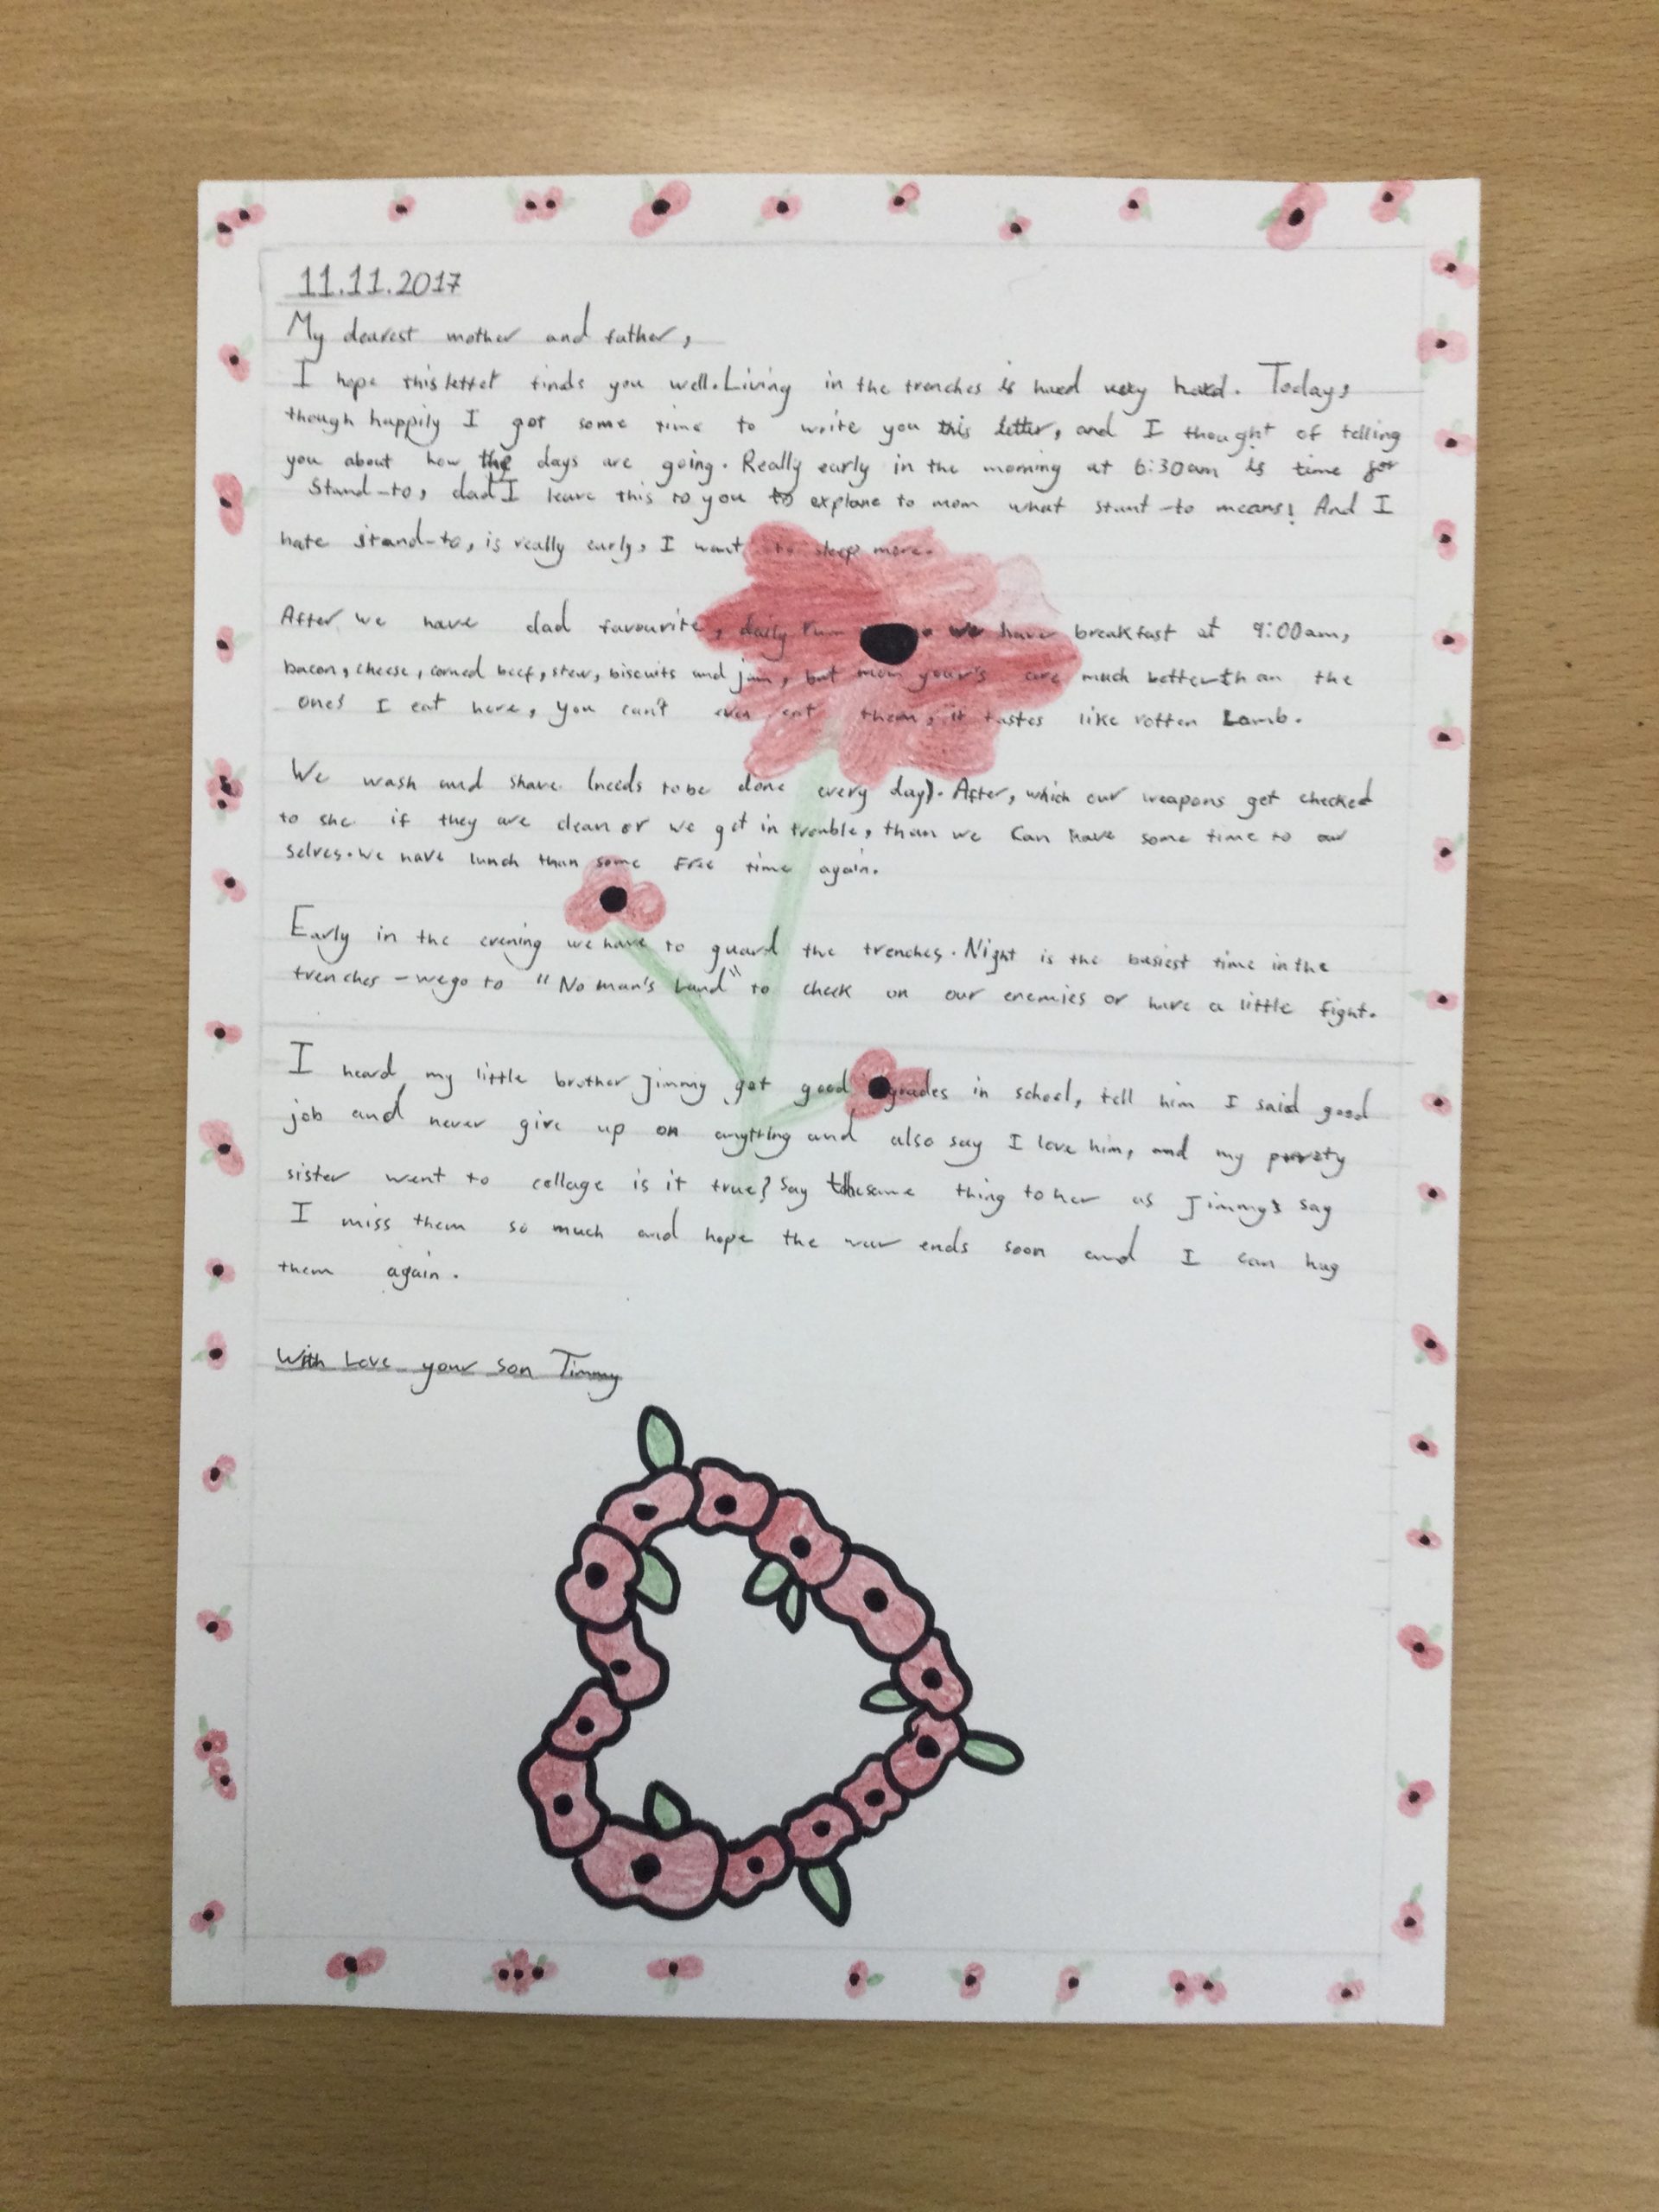 11.11.2017
My dearest mother and father,
I hope this letter finds you well. Living in the trenches is hard very hard. Today,
though happily I got some time to write you this letter, and I thought of telling
you about how the days are going. Really early in the morning at 6:30am is time for
Stand-to, dad I leave this to you to explane to mom what stant-to means! And I
hate stand-to, is really early, I want to sleep more.
After we have dad favourite, daily rum we have breakfast at 9:00am,
bacon, cheese, corned beef, stew, biscuits and jam, but mom your's are much better than the
ones I eat here, you can't even eat them, it tastes like rotten Lamb.
We wash and shave (needs to be done every day). After, which our weapons get checked
to she if they are clean or we get in trouble, than we can have some time to our
selves. We have lunch than some free time again.
Early in the evening we have to guard the trenches. Night is the busiest time in the
trenches - we go to "No man's Land" to check on our enemies or have a little fight.
I heard my little brother Jimmy got good grades in school, tell him I said good
job and never give up on anything and also say I love him, and my
sister went to collage is it true? Say the same thing to her as Jimmy's say
I miss them so much and hope the war ends soon and I can hug
them again.
With Love your son Timmy